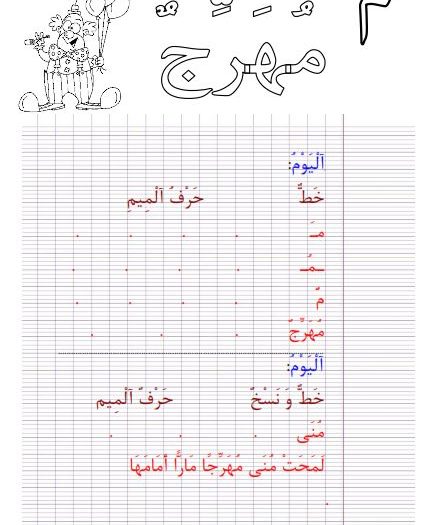 م
مهرج
اَلْيَوْمُ:
خَطٌّ حَرْفُ اَلْمِيمِ
مـَ . . . .
ـمُـ . . . .
مٌ . . . .
مُهَرِّجٌ . . .
اَلْيَوْمُ:
خَطٌّ وَ نَسْخٌ حَرْفُ اَلْمِيمِ
مُنَى . . .
لَمَحَتْ مُنَى مُهَرِّجًا مَارًّا أَمَامَهَا
.